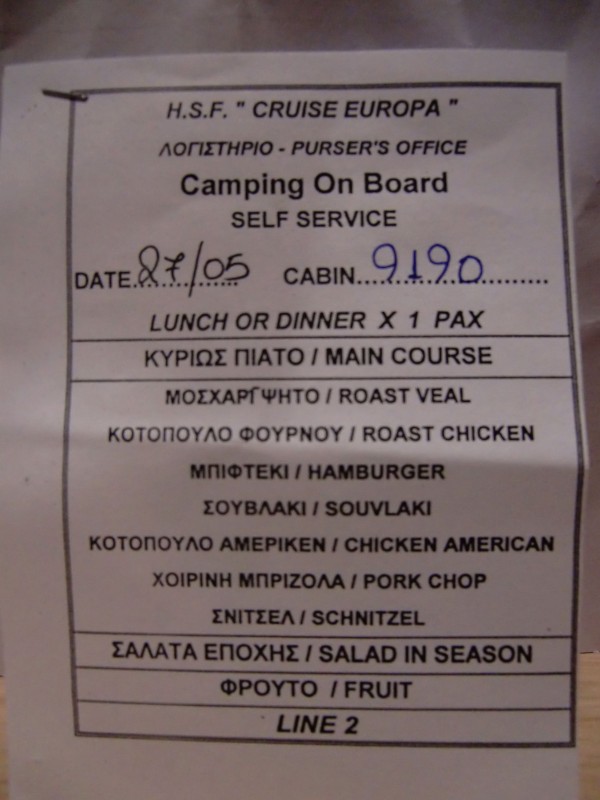 H.S.F. " CRUISE EUROPA "
ΛΟΓΙΣΤΗΡΙΟ - PURSER'S OFFICE
Camping On Board
SELF SERVICE
DATE.27/05...... CABIN....9190..........
LUNCH OR DINNER X 1 PAX
ΚΥΡΙΩΣ ΠΙΑΤΟ / MAIN COURSE
ΜΟΣΧΑΡΓΨΗΤΟ / ROAST VEAL
ΚΟΤΟΠΟΥΛΟ ΦΟΥΡΝΟΥ / ROAST CHICKEN
ΜΠΙΦΤΕΚΙ / HAMBURGER
ΣΟΥΒΛΑΚΙ / SOUVLAKI
ΚΟΤΟΠΟΥΛΟ ΑΜΕΡΙΚΕΝ / CHICKEN AMERICAN
ΧΟΙΡΙΝΗ ΜΠΡΙΖΟΛΑ / PORK CHOP
ΣΝΙΤΣΕΛ / SCHNITZEL
ΣΑΛΑΤΑ ΕΠΟΧΗΣ / SALAD IN SEASON
ΦΡΟΥΤΟ / FRUIT
LINE 2